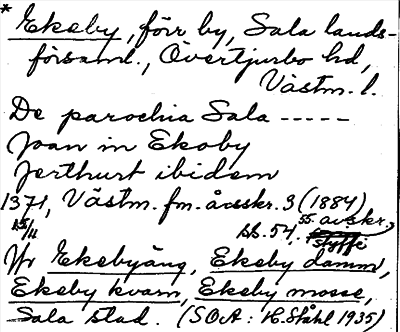 * Ekeby, förr by, Sala lands-
församl., Övertjurbo hd,
Västm. l.
De parochia Sala -----
Joan in Ekoby
Jerthurt ibidem
1371, Västm. fm. årsskr. 3 (1884)
15/11 bb. 54, 55. avskr.
Styffe
Jfr Ekebyäng, Ekeby damm,
Ekeby kvarn, Ekeby mosse,
Sala stad. (SOA: H. Ståhl 1935)